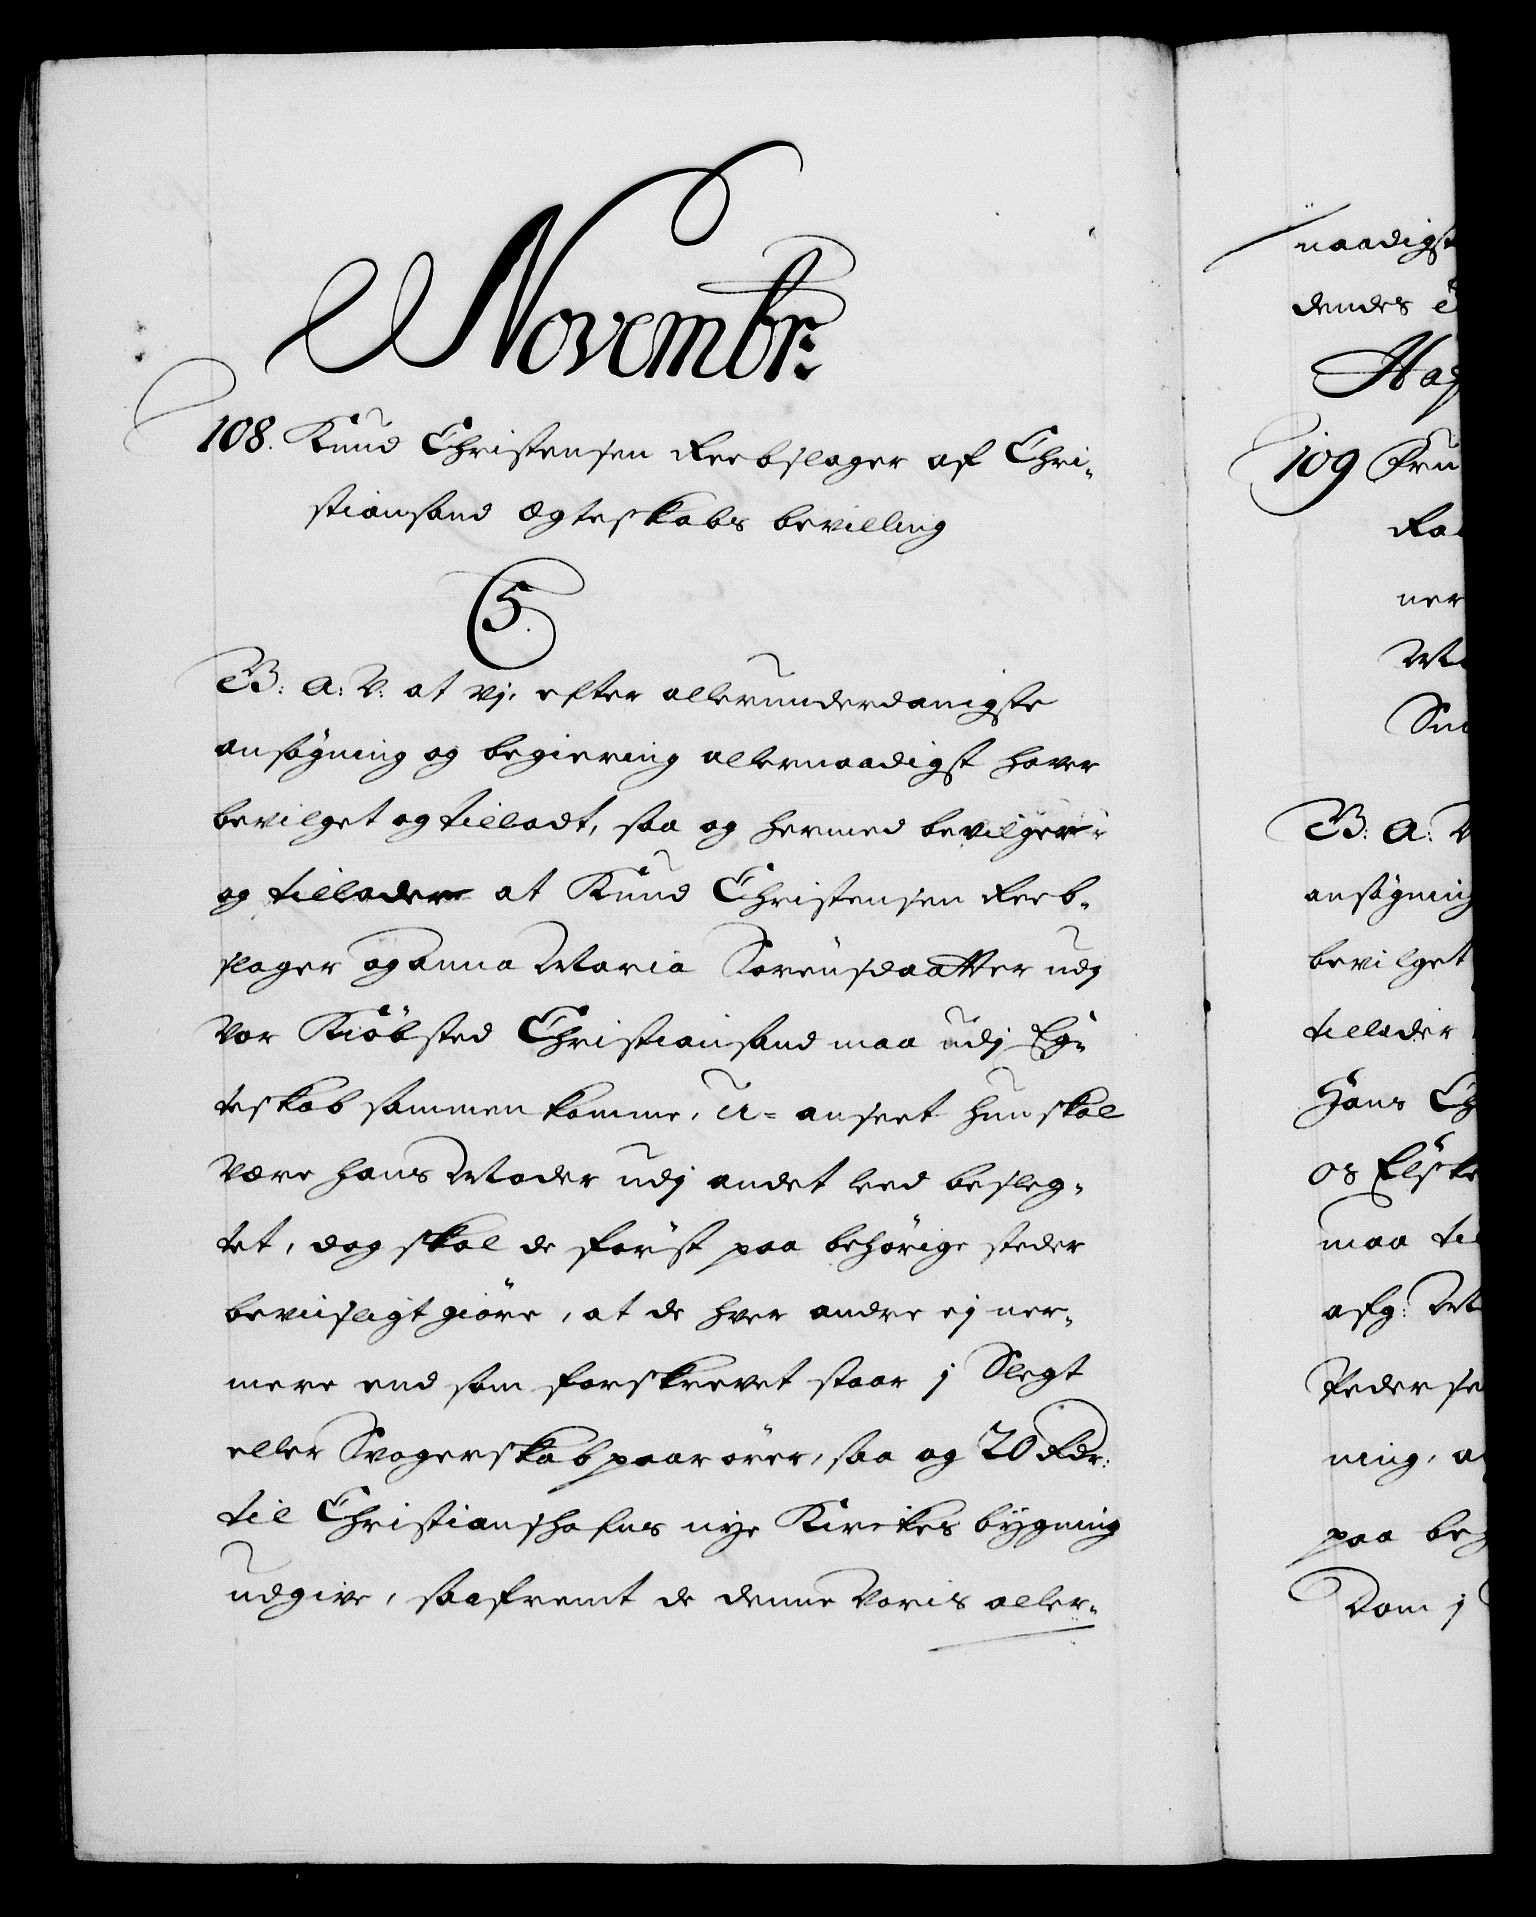 Novembr:
108. Knud Christensen Reebslager af Chri-
stiansand Ægteskabs bevilling
5.
B: A: V: at vj, efter allerunderdanigste
ansøgning og begiering allernaadigst haver
bevilget og tilladt, saa og hermed bevilger
og tillader at Knud Christensen Reeb-
slager og Anna Maria Sørensdaatter udj
vor Kiøbsted Christiansand maa udj Eg-
teskab sammen komme, U-anseet hun skal
være hans Moder udj andet leed besleg-
tet, dog skal de først paa behörige steder
beviisligt giöre, at de hver andre ej ner-
mere end som forskrevet staar j Slegt
eller Svogerskab paarörer, saa og 20 Rdr:
til Christianshafns nye Kirkes bÿgning
udgive, saafremt de denne voris aller-
naadigst
dendes
Haf
109 Fru
ner
B: A: V
ansøgning
bevilget
tillader
Hans Ch
os Elske
maa til
afg: M
Pederse
ning, a
paa beh
Dom j